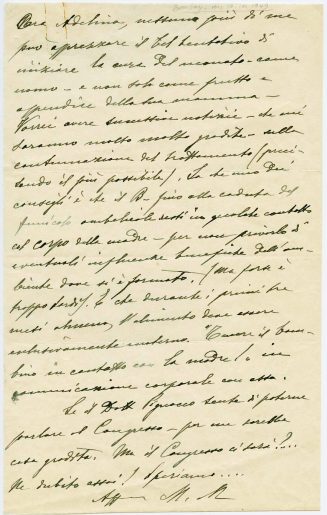 Cara Adelina, nessuno più di me
può apprezzare il bel tentativo di
iniziare la cura del neonato - come
uomo - e non solo come frutto e
appendice della sua mamma -
Vorrei avere successive notizie - che mi
saranno molto molto gradite - sulla
continuazione del trattamento (preci
sando il più possibile). Le che uno dei
consigli è che il B - fino alla caduta del
funicolo ombelicale resti in geolate contatto
col corpo della madre - per non privarlo di
eventuali influenze benefiche dell'am-
biente dove si è formato. (Ma forse è
troppo tardi). E che durante i primi tre
mesi almeno, l'alimento deve essere
esclusivamente materno. Tenere il bam
bino in contatto con la madre! o in
comunicazione corporale con essa.
Se il Dott. Pignocco sente di poterne
parlare al Congresso - per me sarebbe
cosa gradita. Ma il Congresso ci sarà?...
Ne dubito assai! Speriamo....
Aff M. M